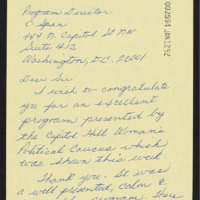 Program Director
C Span
444 N. Capitol St NW
Suite 412
Washington, D.C. 20001
Dear Sir
I wish to congratulate
you for an excellent
program presented by
the Capitol Hill Woman's
Political Caucus which
was shown this week
Thank you - It was
a well presented, calm &
program. There
002594 JAN12'92